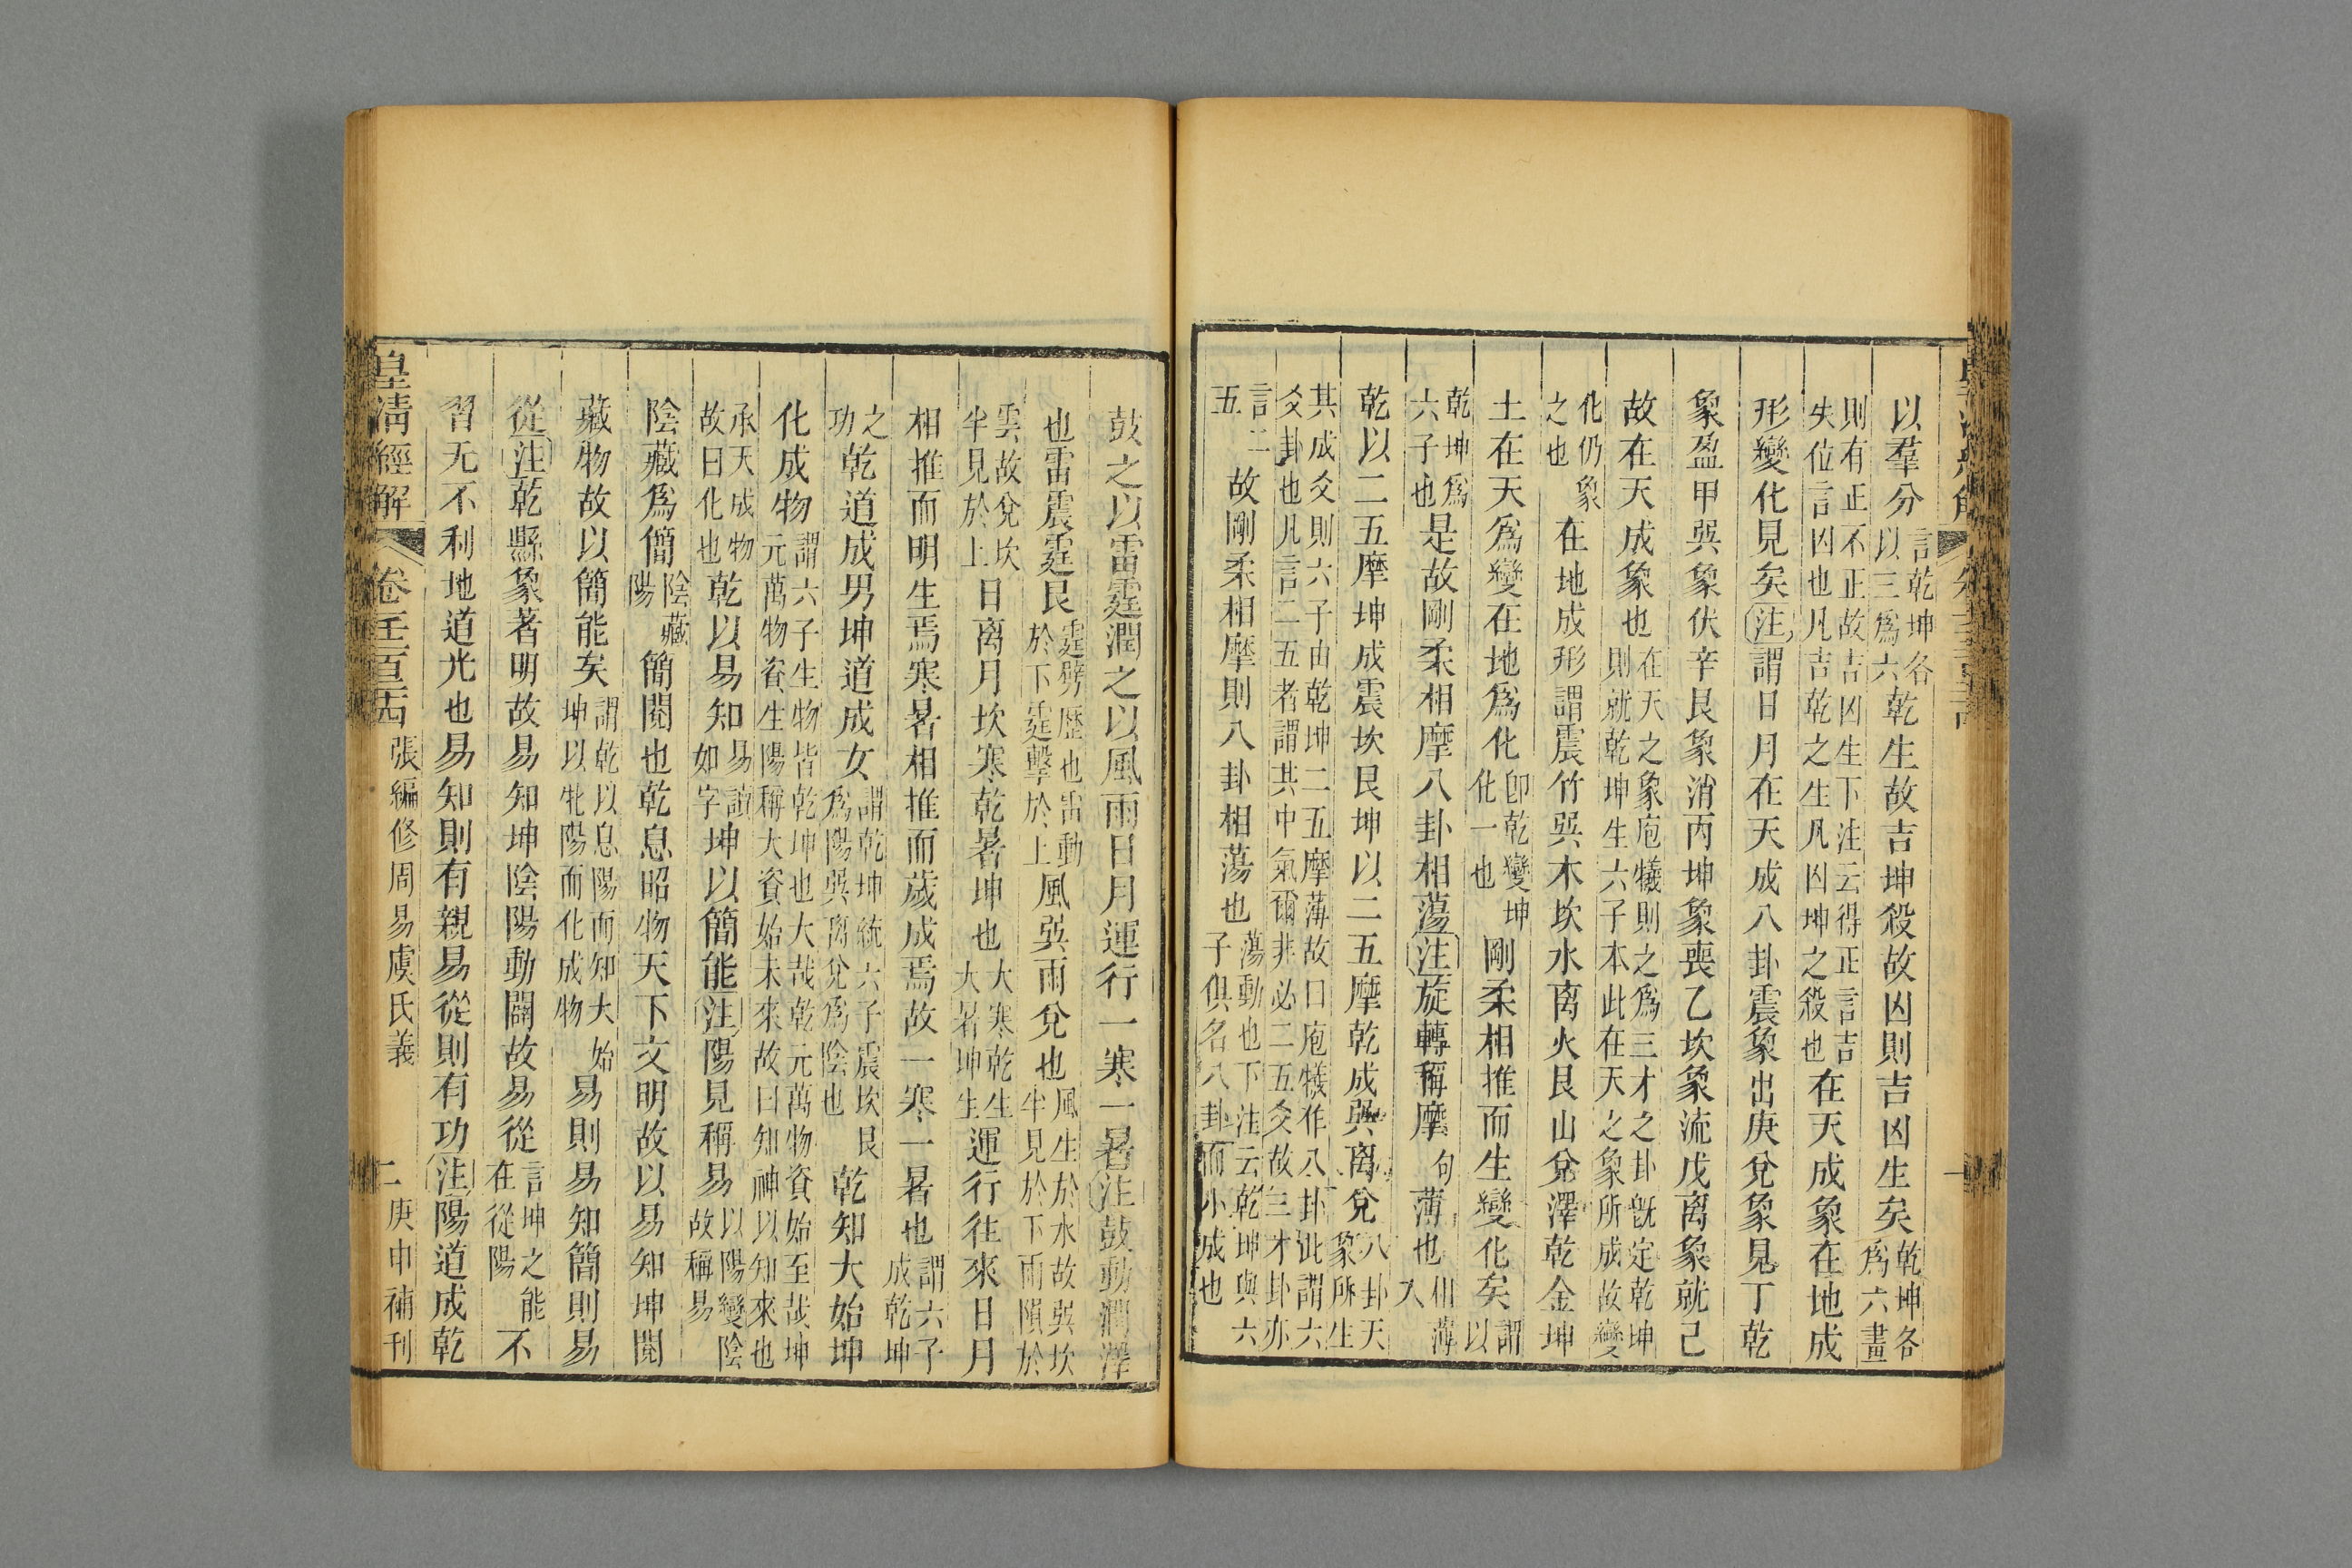 皇清經解
以羣分言乾坤各以三爲六乾生故吉坤殺故凶則吉凶生矣乾坤各爲六畫
則有正不正故吉凶生下注云得正言吉失位言凶也凡吉乾之生凡凶坤之殺也在天成象在地成
形變化見矣注謂日月在天成八卦震象出庚兌象見丁乾
象盈甲巽象伏辛艮象消丙坤象喪乙坎象流戊离象就己
故在天成象也在天之象庖犧則之爲三才之卦旣定乾坤則就乾坤生六子本此在天之象所成故變
化仍象之也在地成形謂震竹巽木坎水离火艮山兌澤乾金坤
土在天爲變在地爲化卽乾變坤化一也剛柔相推而生變化矣謂以
乾坤爲六子也是故剛柔相摩八卦相蕩注旋轉稱摩句薄也相薄入
乾以二五摩坤成震坎艮坤以二五摩乾成巽离兌八卦天象所生
其成爻則六子由乾坤二五摩薄故曰庖犧作八卦此謂六爻卦也凡言二五者謂其中氣爾非必二五爻故三才卦亦
言二五故剛柔相摩則八卦相蕩也蕩動也下注云乾坤與六子俱名八卦而小成也
鼓之以雷霆潤之以風雨日月運行一寒一暑注鼓動潤澤
也雷震霆艮霆劈歷也雷動於下霆擊於上風巽雨兌也風生於水故巽坎半見於下雨隕於
雲故兌坎半見於上日离月坎寒乾暑坤也大寒乾生大暑坤生運行往來日月
相推而明生焉寒暑相推而歲成焉故一寒一暑也謂六子成乾坤
之功乾道成男坤道成女謂乾坤統六子震坎艮爲陽巽离兌爲陰也乾知大始坤
化成物謂六子生物皆乾坤也大哉乾元萬物資始至哉坤元萬物資生陽稱大資始未來故曰知神以知來也
承天成物故曰化也乾以易知易讀如字坤以簡能注陽見稱易以陽變陰故稱易
陰藏爲簡陰藏陽簡閱也乾息昭物天下文明故以易知坤閱
藏物故以簡能矣謂乾以息陽而知大始坤以牝陽而化成物易則易知簡則易
從注乾縣象著明故易知坤陰陽動闢故易從言坤之能在從陽不
習无不利地道光也易知則有親易從則有功注陽道成乾
皇清經解 卷壬百舌 張編修周易虞氏義 二 庚申補刊